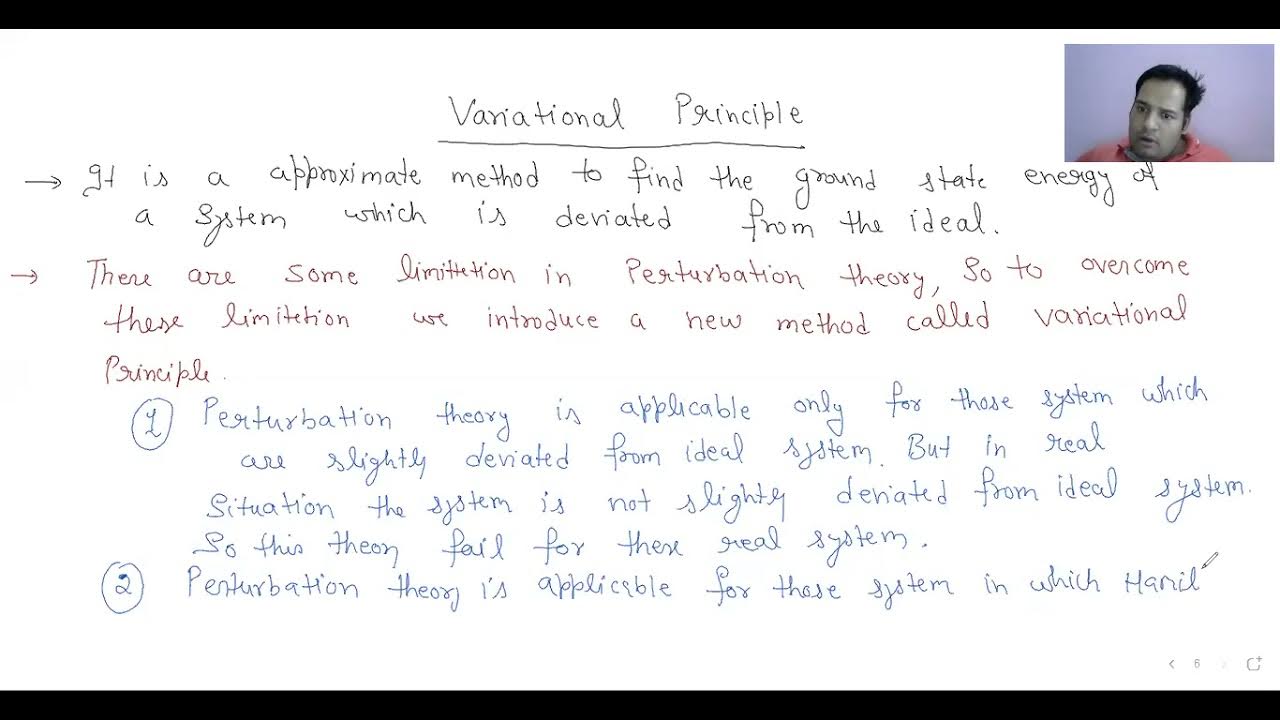 Variational Principle
→ It is a approximate method to find the ground state energy of
a system which is deviated from the ideal.
→ There are some limittetion in Perturbation theory, So to overcome
these limitetion we introduce a new method called variational
Principle.
1 Perturbation theory is applicable only for those system which
are slightly deviated from ideal system. But in real
situation the system is not slightly deviated from ideal system.
So this theory fail for these real system.
2 Perturbation theory is applicable for those system in which Hamil
6